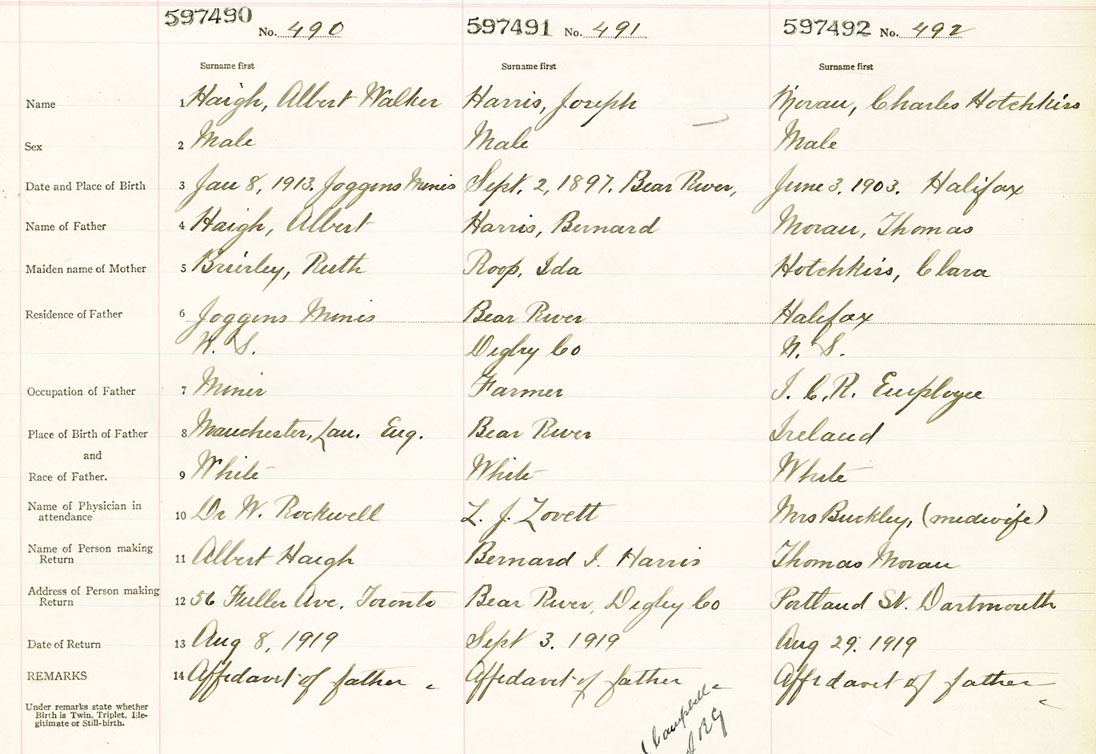 597490 No. 490 597491 No. 491 597492 No. 492
Surname first Surname first Surname first
Name 1 Haigh, Albert Walker Harris, Joseph Moran, Charles Hotchkiss
Sex 2 Male Male Male
Date and Place of Birth 3 Jan 8, 1913. Joggins Mines Sept. 2, 1897. Bear River, June 3. 1903. Halifax
Name of Father 4 Haigh, Albert Harris, Bernard Moran, Thomas
Maiden name of Mother 5 Brierley, Ruth Roop, Ida Hotchkiss, Clara
Residence of Father 6 Joggins Mines Bear River Halifax
N. S. Digby Co N. S.
Occupation of Father 7 Miner Farmer I. C. R. Employee
Place of Birth of Father 8 Manchester, Lan. Eng. Bear River Ireland
and
Race of Father. 9 White White White
Name of Physician in
attendance 10 Dr W. Rockwell L. J. Lovett Mrs Buckley, (medwife)
Name of Person making
Return 11 Albert Haigh Bernard I. Harris Thomas Moran
Address of Person making
Return 12 56 Fuller Ave. Toronto Bear River, Digby Co Portland St. Dartmouth
Date of Return 13 Aug 8, 1919 Sept 3. 1919 Aug 29. 1919
REMARKS 14 Affidavit of father Affidavit of father Affidavit of father
Under remarks state whether
Birth is Twin, Triplet, Ille-
gitimate or Still-birth.
Campbell